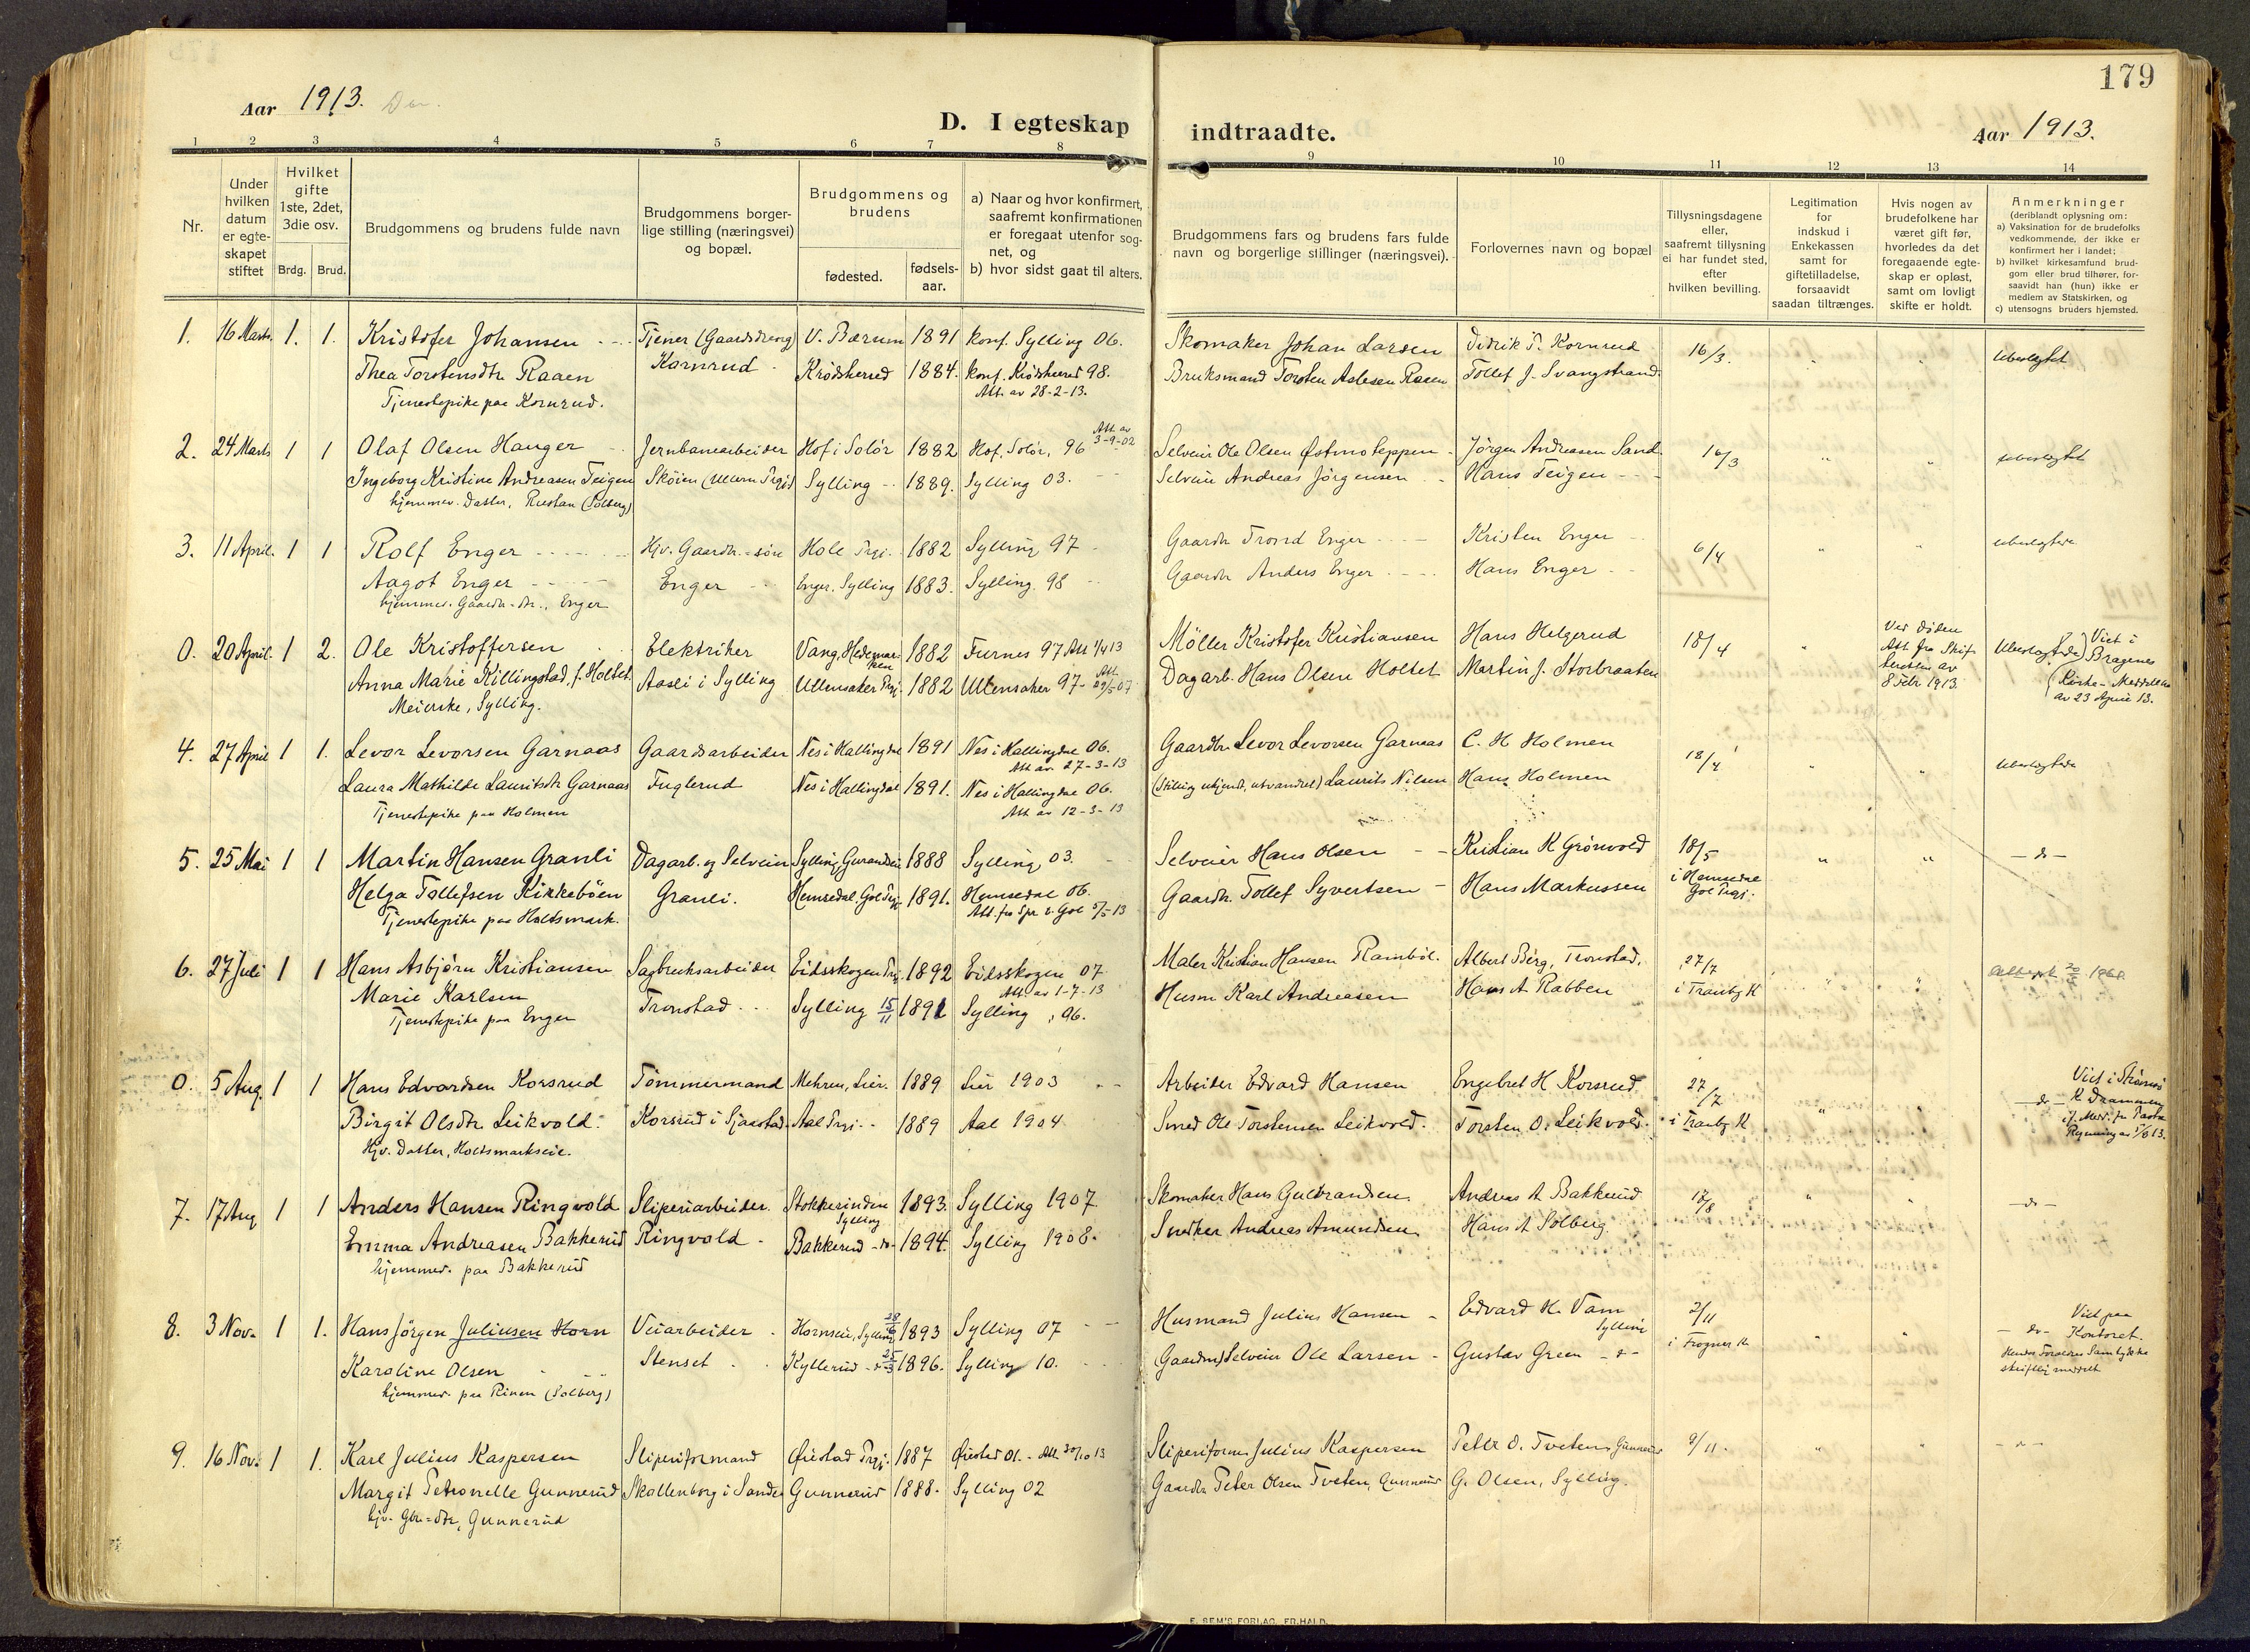 179
Aar 1913.
D. I egteskap indtraadte.
Aar 1913.
1 2 3 4 5 6 7 8 9 10 11 12 13 14
Nr.
Under hvilken datum er egteskapet stiftet
Hvilket gifte 1ste, 2det, 3die osv.
Brdg. Brud.
Brudgommens og brudens fulde navn
Brudgommens borgerlige stilling (næringsvei) og bopæl.
Brudgommens og brudens
fødested.
fødselsaar.
a) Naar og hvor konfirmert, saafremt konfirmationen er foregaat utenfor sognet, og
b) hvor sidst gaat til alters.
Brudgommens fars og brudens fars fulde navn og borgerlige stillinger (næringsvei).
Forlovernes navn og bopæl
Tillysningsdagene eller, saafremt tillysning ei har fundet sted, efter hvilken bevilling.
Legitimation for indskud i Enkekassen samt for giftetilladelse, forsaavidt saadan tiltrænges.
Hvis nogen av brudefolkene har været gift før, hvorledes da det foregaaende egteskap er opløst, samt om lovligt skifte er holdt.
Anmerkninger
(deriblandt oplysning om:
a) Vaksination for de brudefolks vedkommende, der ikke er konfirmert her i landet;
b) hvilket kirkesamfund brudgom eller brud tilhører, forsaavidt han (hun) ikke er medlem av Statskirken, og
c) utensogns bruders hjemsted.
1. 16 Marts. 1. 1. Kristofer Johansen Tjener (Gaardsdreng) V. Bærum 1891 konf. Sylling 06. Skomaker Johan Larsen Didrik P. Kornrud 16/3. " " Ubeslegtet
Thea Torstensdtr Raaen Kornrud Krødsherred 1884. konf. Krødsherred 98. Bruksmand Torsten Aslesen Raaen Tollef J. Svangstrand.
Tjenestepike paa Kornrud. Att. av 28-2-13.
2. 24 Marts 1 1 Olaf Olsen Hauger Jernbanearbeider Hof i Solør 1882 Hof, Solør, 96 Att. av 3-9-02 Selveier Ole Olsen Østmoteppen Jørgen Andreasen Sand. 16/3 " " ubeslegtet
Ingeborg Kristine Andreasen Teigen Skøien (Ullern Prgj) Sylling 1889. Sylling 03. Selveier Andreas Jørgensen Hans Teigen
hjemmev. Datter, Rustan (Solberg)
3. 11 April. 1 1 Rolf Enger Hjv. Gaardbr.-søn Hole Prgj. 1882 Sylling 97 Gaardbr Trond Enger Kristen Enger 6/4 " " ubeslegtede
Aagot Enger Enger Enger, Sylling 1883. Sylling 98 Gaardbr Anders Enger Hans Enger
hjemmev. Gaardbr-dtr., Enger
0. 20 April. 1 2. Ole Kristoffersen Elektriker Vang, Hedemarken 1882 Furnes 97 Att 1/4 13 Møller Kristofer Kristiansen Hans Helgerud 18/4 " Ved døden Att. fra Skifteretten av 8 Febr 1913. Ubeslegtede Viet i Bragenes Kirke - Meddelelse av 23 April 13.
Anna Marie Killingstad, f. Holtet Aasli i Sylling Ullensaker Prgj. 1882 Ullensaker 97 - Att. Dagarb. Hans Olsen Holtet Martin J. Storbraaten
Meierske, Sylling.
4. 27 April 1 1. Levor Levorsen Garnaas Gaardsarbeider Nes i Hallingdal 1891 Nes i Hallingdal 06. Gaardbr. Levor Levorsen Garnaas C. H Holmen 18/4 " " ubeslegtede
Att. av 27-3-13
Laura Mathilde Lauritsdtr Garnaas Fuglerud Nes i Hallingdal 1891. Nes i Hallingdal 06. (Stilling ukjendt, utvandret) Laurits Nilsen Hans Holmen
Tjenestepike paa Holmen Att av 12-3-13
5. 25 Mai 1 1 Martin Hansen Granli Dagarb. og Selveier Sylling, 1888 Sylling 03. Selveier Hans Olsen Kristian K Grønvold 18/5 " " -do-
Helga Tollefsen Kirkebøen Granli. Hemsedal, Gol Prgj. 1891. Hemsedal 06. Gaardbr. Tollef Syvertsen Hans Markussen i Hemsedal Gol Prgj.
Tjenestepike paa Holtsmark. Att. fra Spr. i Gol 5/5 13
6. 27 Juli 1 1 Hans Asbjørn Kristiansen Sagbruksarbeider Eidsskogen Prgj 1892 Eidsskogen 07. Maler Kristian Hansen Rambøl. Albert Berg, Tronstad. 27/7 " "
Att. av 1-7-13
Marie Karlsen Tronstad Sylling 15/11 1891 Sylling 06. Husm Karl Andreasen Hans A Rabben i Tranby K
Tjenestepike paa Enger
0. 5 Aug. 1 1 Hans Edvardsen Korsrud Tømmermand Mehren, Lier. 1889 Lier 1903 Arbeider Edvard Hansen Engebret H Korsrud 27/7 " " -do- Viet i Strømsø K Drammen
Birgit Olsdtr Leikvold. Korsrud i Sjaastad. Aal Prgj. 1889 Aal 1904 Smed Ole Torstensen Leikvold. Torsten O. Leikvold. i Tranby K
Hjv. Datter, Holtsmarkseie.
7. 17 Aug 1 1 Anders Hansen Ringvold Sliperiarbeider. Stokkerinden Sylling 1893. Sylling 1907 Skomaker Hans Gulbrandsen. Andreas A Bakkerud 17/8 " " -do-
Emma Andreasen Bakkerud Ringvold Bakkerud -do- 1894. Sylling 1908. Snedker Andreas Amundsen Hans A Solberg
hjemmev. paa Bakkerud
8. 3 Nov. 1 1. Hans Jørgen Juliusen Horn Veiarbeider Hornseie, Sylling 28/6 1893 Sylling 07 Husmand Julius Hansen Edvard H. Vam Sylling 2/11 " " -do- Viet paa Kontoret.
Karoline Olsen Stenset Kyllerud -do- 25/3 1896. Sylling 10. Selveier Ole Larsen Gustav Green -do- i Frogner K Hendes Forældres Samtykke skriftlig meddelt
hjemmev. paa Rinen (Solberg)
9. 16 Nov. 1 1. Karl Julius Kaspersen Sliperiformand Øiestad Prgj. 1887 Øiestad 01. - Att. 30/10 13 Sliperiform Julius Kaspersen Peter O. Tveten, Gunnerud 9/11. " " -do-
Margit Petronelle Gunnerud Skollenborg i Sandsv Gunnerud 1888. Sylling 02 Gaardbr Peter Olsen Tveten, Gunnerud G. Olsen, Sylling.
hjv. Gbr-dtr, Gunnerud
E. SEM'S FORLAG, FR.HALD.